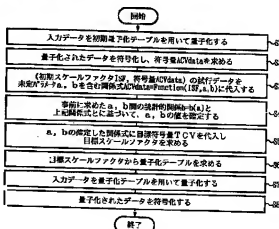 開始
入力データを初期量子化テーブルを用いて量子化する
量子化されたデータを符号化し、符号量ACVdataを求める
(初期スケールファクタISF, 符号量ACVdata)の試行データを
未定パラメータa, bを含む関係式ACVdata=Function(ISF,a,b)に代入する
事前に求めたa, b間の統計的関係b=b(a)と
上記関係式とに基づいて、a, bの値を確定する
a, bの確定した関係式に目標符号量TCVを代入し
目標スケールファクタを求める
目標スケールファクタから量子化テーブルを求める
入力データを量子化テーブルを用いて量子化する
量子化されたデータを符号化する
終了